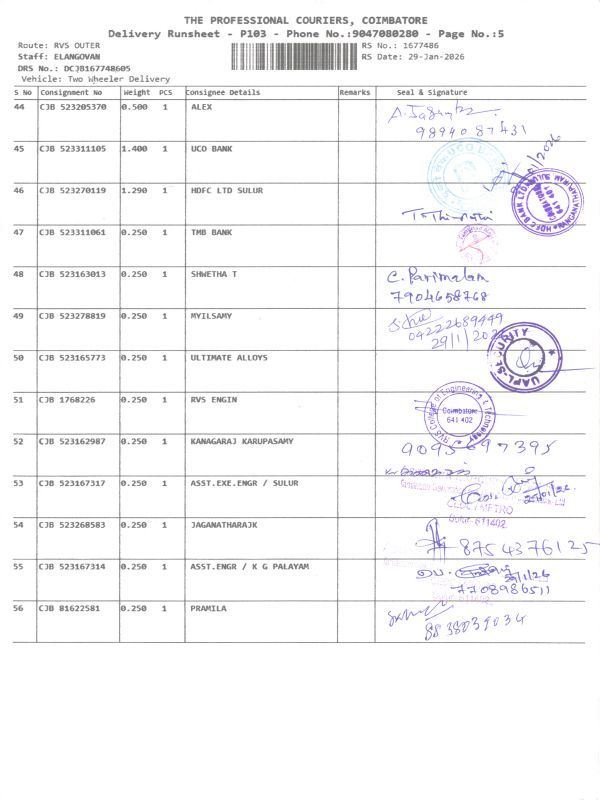 THE PROFESSIONAL COURIERS, COIMBATORE
Delivery Runsheet - P103 - Phone No.:9047080280 - Page No.:5
Route: RVS OUTER RS No.: 1677486
Staff: ELANGOVAN RS Date: 29-Jan-2026
DRS No.: DCJB167748605
Vehicle: Two Wheeler Delivery
S No Consignment No Weight PCS Consignee Details Remarks Seal & Signature
44 CJB 523205370 0.500 1 ALEX
9894087431
45 CJB 523311105 1.400 1 UCO BANK
46 CJB 523270119 1.290 1 HDFC LTD SULUR
47 CJB 523311061 0.250 1 TMB BANK
48 CJB 523163013 0.250 1 SHWETHA T C. Parimalam
7904658768
49 CJB 523278819 0.250 1 MYILSAMY
04222689449
29/1/2026
50 CJB 523165773 0.250 1 ULTIMATE ALLOYS UAPL-SECURITY
51 CJB 1768226 0.250 1 RVS ENGIN RVS College of Engineering & Technology
Coimbatore
641 402
52 CJB 523162987 0.250 1 KANAGARAJ KARUPASAMY 9095697395
53 CJB 523167317 0.250 1 ASST.EXE.ENGR / SULUR
54 CJB 523268583 0.250 1 JAGANATHARAJK 8754376125
55 CJB 523167314 0.250 1 ASST.ENGR / K G PALAYAM
7708986511
56 CJB 81622581 0.250 1 PRAMILA
8838039034